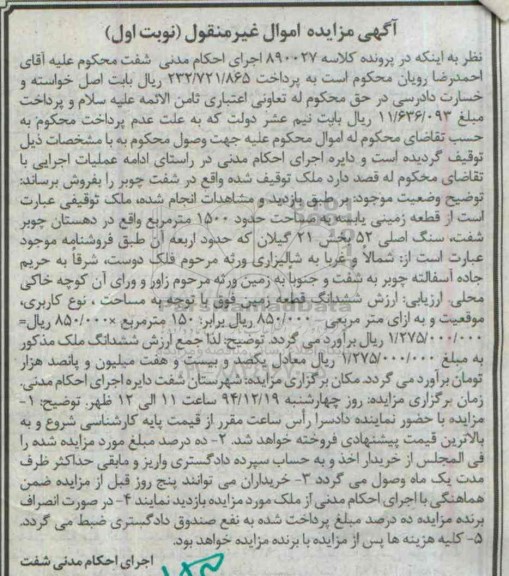 آگهی مزایده اموال غیرمنقول (نوبت اول)
نظر به اینکه در پرونده کلاسه ۸۹۰۰۲۷ اجرای احکام مدنی شفت محکوم علیه آقای
احمدرضا رویان محکوم است به پرداخت ۲۳۲/۷۲۱/۸۶۵ ریال بابت اصل خواسته و
خسارت دادرسی در حق محکوم له تعاونی اعتباری ثامن الائمه علیه سلام و پرداخت
مبلغ ۱۱/۶۳۶/۰۹۳ ریال بابت نیم عشر دولت که به علت عدم پرداخت محکوم به
حسب تقاضای محکوم له اموال محکوم علیه جهت وصول محکوم به با مشخصات ذیل
توقیف گردیده است و دایره اجرای احکام مدنی در راستای ادامه عملیات اجرایی با
تقاضای محکوم له قصد دارد ملک توقیف شده واقع در شفت چوبر را بفروش برساند:
توضیح وضعیت موجود: بر طبق بازدید و مشاهدات انجام شده، ملک توقیفی عبارت
است از قطعه زمینی یابیته به مساحت حدود ۱۵۰۰ مترمربع واقع در دهستان چوبر
شفت، سنگ اصلی ۵۲ بخش ۲۱ گیلان که حدود اربعه آن طبق فروشنامه موجود
عبارت است از: شمالاً و غرباً به شالیزاری ورثه مرحوم فلک دوست، شرقاً به حریم
جاده آسفالته چوبر به شفت و جنوباً به زمین ورثه مرحوم زاور و ورای آن کوچه خاکی
محلی. ارزیابی: ارزش ششدانگ قطعه زمین فوق با توجه به مساحت ، نوع کاربری،
موقعیت و به ازای متر مربعی ۸۵۰/۰۰۰ ریال برابر: ۱۵۰ مترمربع ×۸۵۰/۰۰۰ ریال=
۱/۲۷۵/۰۰۰/۰۰۰ ریال برآورد می گردد. توضیح: لذا جمع ارزش ششدانگ ملک مذکور
به مبلغ ۱/۲۷۵/۰۰۰/۰۰۰ ریال معادل یکصد و بیست و هفت میلیون و پانصد هزار
تومان برآورد می گردد. مکان برگزاری مزایده: شهرستان شفت دایره اجرای احکام مدنی.
زمان برگزاری مزایده: روز چهارشنبه ۹۴/۱۲/۱۹ ساعت ۱۱ الی ۱۲ ظهر. توضیح: ۱-
مزایده با حضور نماینده دادسرا رأس ساعت مقرر از قیمت پایه کارشناسی شروع و به
بالاترین قیمت پیشنهادی فروخته خواهد شد. ۲- ده درصد مبلغ مورد مزایده شده را
فی المجلس از خریدار اخذ و به حساب سپرده دادگستری واریز و مابقی حداکثر ظرف
مدت یک ماه وصول می گردد ۳- خریداران می توانند پنج روز قبل از مزایده ضمن
هماهنگی با اجرای احکام مدنی از ملک مورد مزایده بازدید نمایند ۴- در صورت انصراف
برنده مزایده ده درصد مبلغ پرداخت شده به نفع صندوق دادگستری ضبط می گردد.
۵- کلیه هزینه ها پس از مزایده با برنده مزایده خواهد بود.
اجرای احکام مدنی شفت